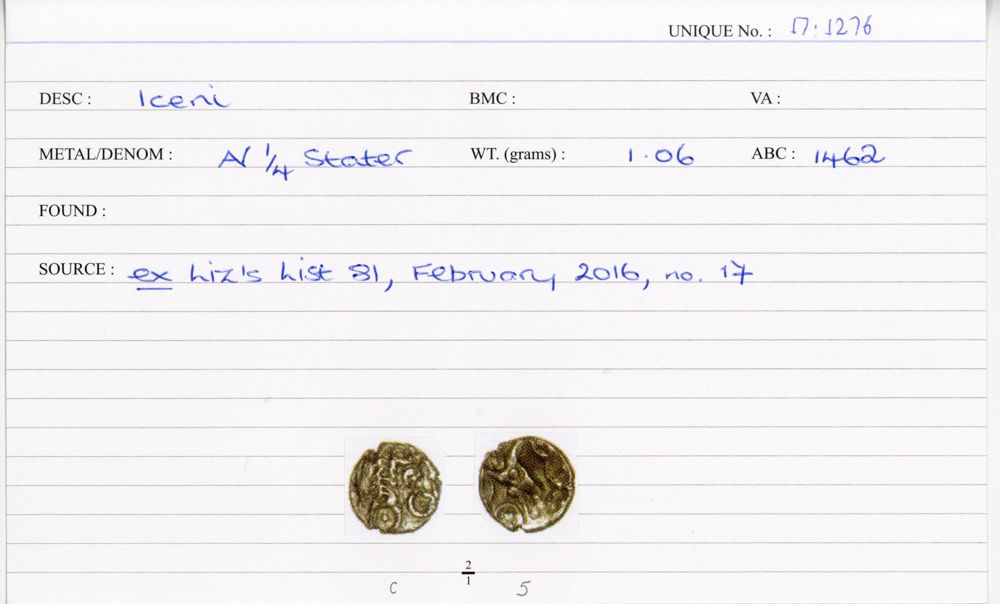 UNIQUE No. : 17:1276
DESC : Iceni BMC : VA :
METAL/DENOM : AV 1/4 Stater WT. (grams) : 1.06 ABC : 1462
FOUND :
SOURCE : ex Liz's List 81, February 2016, no. 17
2/1
c 5